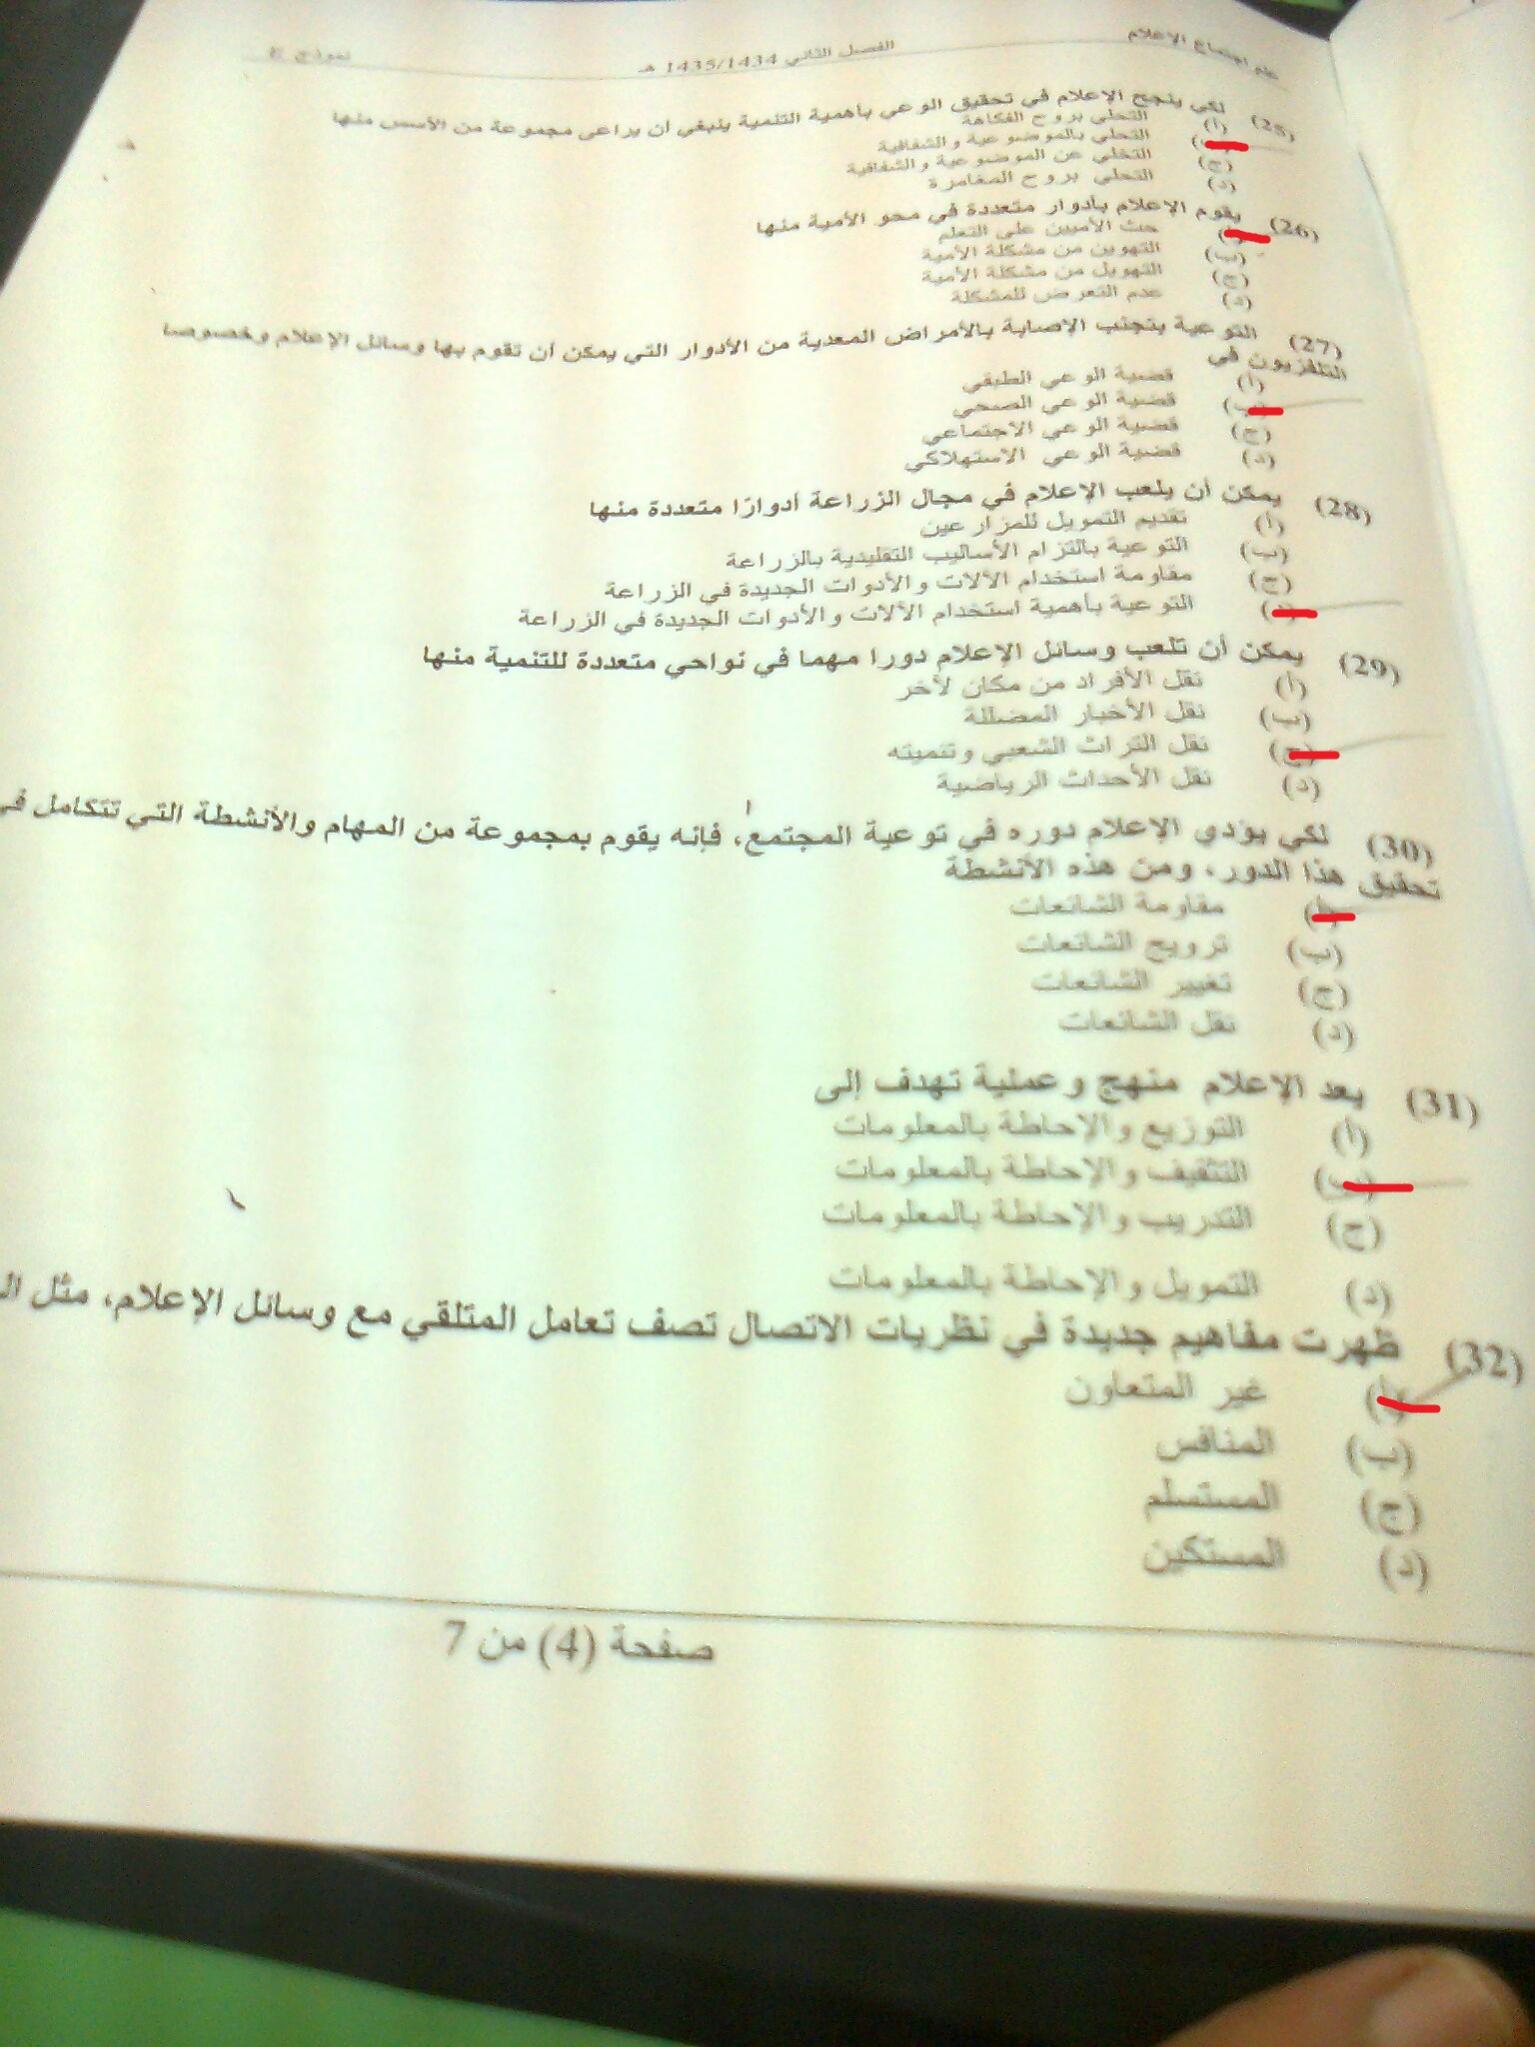 علم اجتماع الإعلام الفصل الثاني 1435/1434 هـ نموذج
(25) لكي ينجح الإعلام في تحقيق الوعي بأهمية التنمية ينبغي أن يراعى مجموعة من الأسس منها
(أ) التحلي بروح الفكاهة
التحلي بالموضوعية والشفافية
(ج) التخلي عن الموضوعية والشفافية
(د) التحلي بروح المغامرة
(26) يقوم الإعلام بأدوار متعددة في محو الأمية منها
حث الأميين على التعلم
(ب) التهوين من مشكلة الأمية
(ج) التهويل من مشكلة الأمية
(د) عدم التعرض للمشكلة
(27) التوعية بتجنب الإصابة بالأمراض المعدية من الأدوار التي يمكن أن تقوم بها وسائل الإعلام وخصوصا
التلفزيون في
(أ) قضية الوعي الطبقي
(ب) قضية الوعي الصحي
(ج) قضية الوعي الاجتماعي
(د) قضية الوعي الاستهلاكي
(28) يمكن أن يلعب الإعلام في مجال الزراعة أدوارًا متعددة منها
(أ) تقديم التمويل للمزارعين
(ب) التوعية بالتزام الأساليب التقليدية بالزراعة
(ج) مقاومة استخدام الآلات والأدوات الجديدة في الزراعة
(د) التوعية بأهمية استخدام الآلات والأدوات الجديدة في الزراعة
(29) يمكن أن تلعب وسائل الإعلام دورا مهما في نواحي متعددة للتنمية منها
(أ) نقل الأفراد من مكان لآخر
(ب) نقل الأخبار المضللة
(ج) نقل التراث الشعبي وتنميته
(د) نقل الأحداث الرياضية
(30) لكي يؤدي الإعلام دوره في توعية المجتمع، فإنه يقوم بمجموعة من المهام والأنشطة التي تتكامل في
تحقيق هذا الدور، ومن هذه الأنشطة
(أ) مقاومة الشائعات
(ب) ترويج الشائعات
(ج) تغيير الشائعات
(د) نقل الشائعات
(31) يعد الإعلام منهج وعملية تهدف إلى
(أ) التوزيع والإحاطة بالمعلومات
(ب) التثقيف والإحاطة بالمعلومات
(ج) التدريب والإحاطة بالمعلومات
(د) التمويل والإحاطة بالمعلومات
(32) ظهرت مفاهيم جديدة في نظريات الاتصال تصف تعامل المتلقي مع وسائل الإعلام، مثل
(أ) غير المتعاون
(ب) المنافس
(ج) المستسلم
(د) المستكين
صفحة (4) من 7